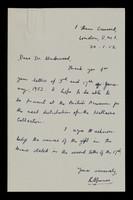 London, N.W.1.
Dear Dr. Underwood
Thank you for
your letters of 3rd and 17th of Jan-
uary, 1952. I hope to be able to
be present at the British Museum for
the next distribution of the Wellcome
Collection.
I agree to acknow-
ledge the receipt of the gift in the
terms stated in the second letter of the 17th.
Yours sincerely,